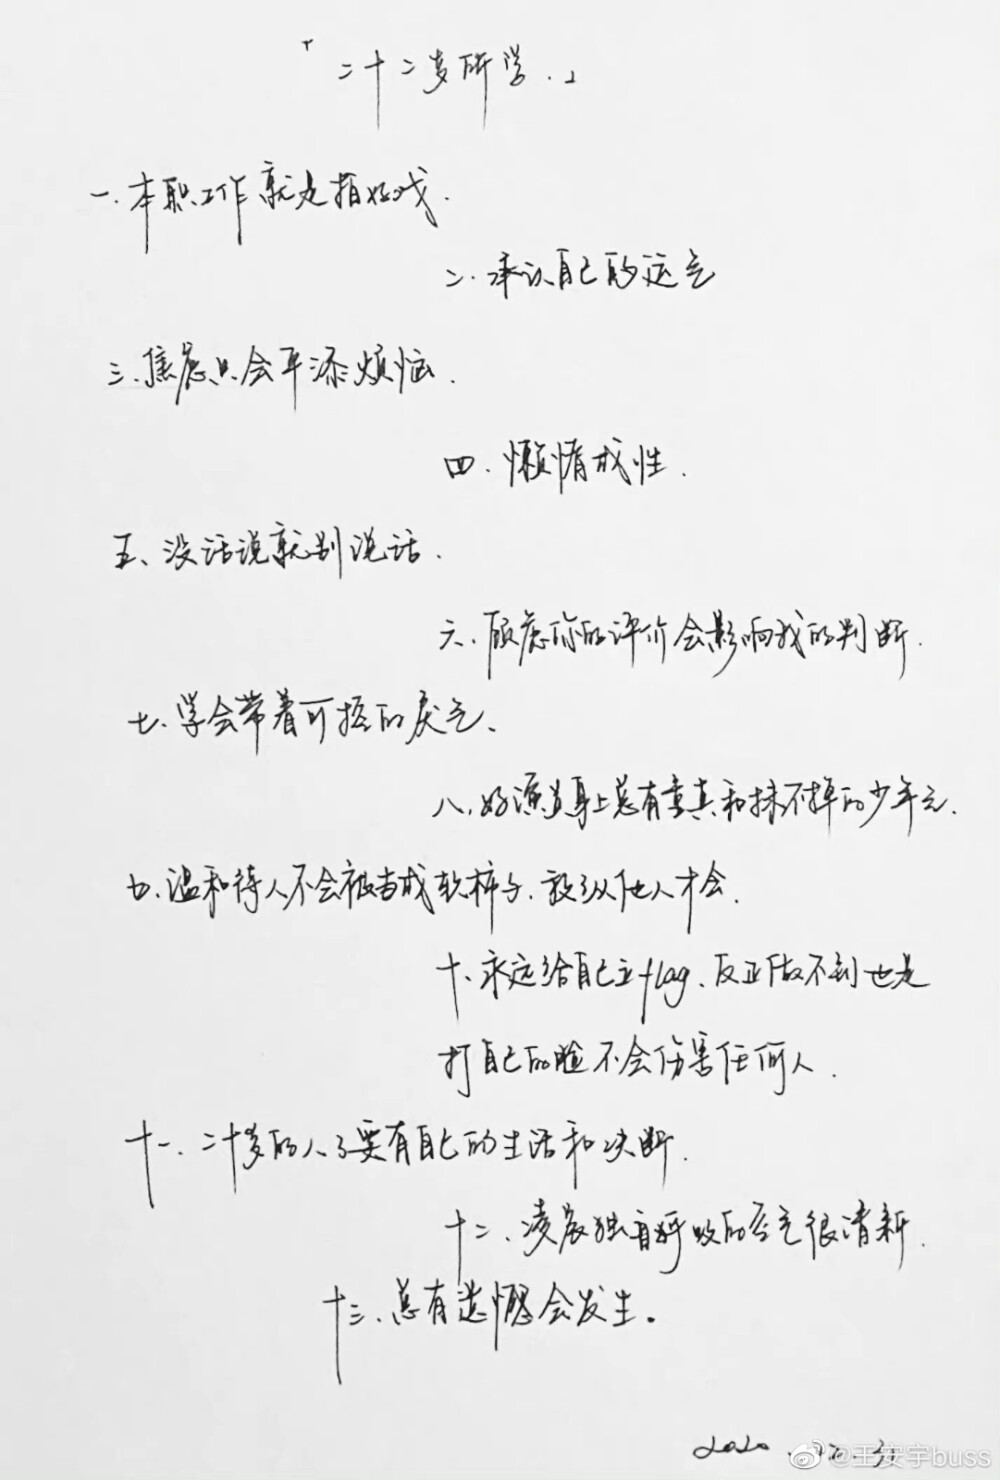 「二十二岁所学.」
一.本职工作就是拍好戏.
二.承认自己的运气
三.焦虑只会平添烦恼.
四.懒惰成性.
五、没话说就别说话.
六.顾虑你的评价会影响我的判断.
七.学会带着可控的戾气、
八.好演员身上总有童真和抹不掉的少年气.
九.温和待人不会被当成软柿子.放纵他人才会.
十.永远给自己立flag、反正做不到也是
打自己的脸不会伤害任何人.
十一.二十岁的人了要有自己的生活和决断.
十二.凌晨独自呼吸的空气很清新.
十三.总有遗憾会发生。
2020
@王安宇buss